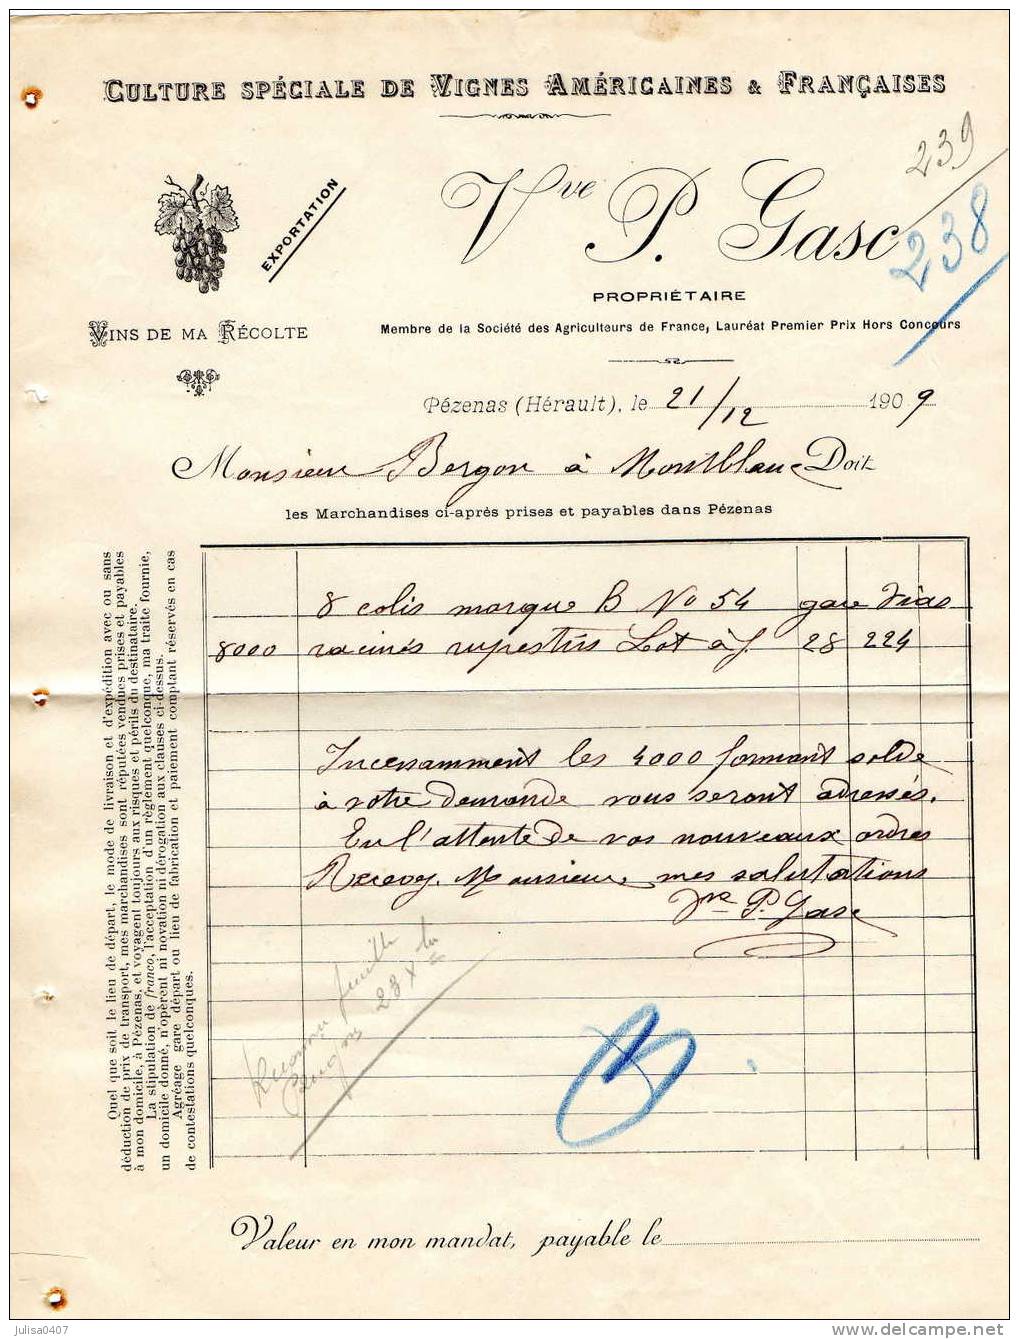 CULTURE SPÉCIALE DE VIGNES AMÉRICAINES & FRANÇAISES
239
238
EXPORTATION
Vve P. Gasc
PROPRIÉTAIRE
VINS DE MA RÉCOLTE
Membre de la Société des Agriculteurs de France, Lauréat Premier Prix Hors Concours
Pézenas (Hérault), le 21/12 1909
Monsieur Bergon à Montblanc Doit
les Marchandises ci-après prises et payables dans Pézenas
8 colis marque B No 54 gare Vias
8000 racinés rupestris Lot à f. 28 224
Incessamment les 4000 formant solde
à votre demande vous seront adressés.
En l'attente de vos nouveaux ordres
Recevez, Monsieur, mes salutations
Vve P. Gasc
feuille
23 X
Quel que soit le lieu de départ, le mode de livraison et d'expédition avec ou sans
déduction de prix de transport, mes marchandises sont réputées vendues prises et payables
à mon domicile, à Pézenas, et voyagent toujours aux risques et périls du destinataire.
La stipulation de franco, l'acceptation d'un règlement quelconque, ma traite fournie,
un domicile donné, n'opèrent ni novation ni dérogation aux clauses ci-dessus.
Agréage gare départ ou lieu de fabrication et paiement comptant réservés en cas
de contestations quelconques.
Valeur en mon mandat, payable le
julisa0407